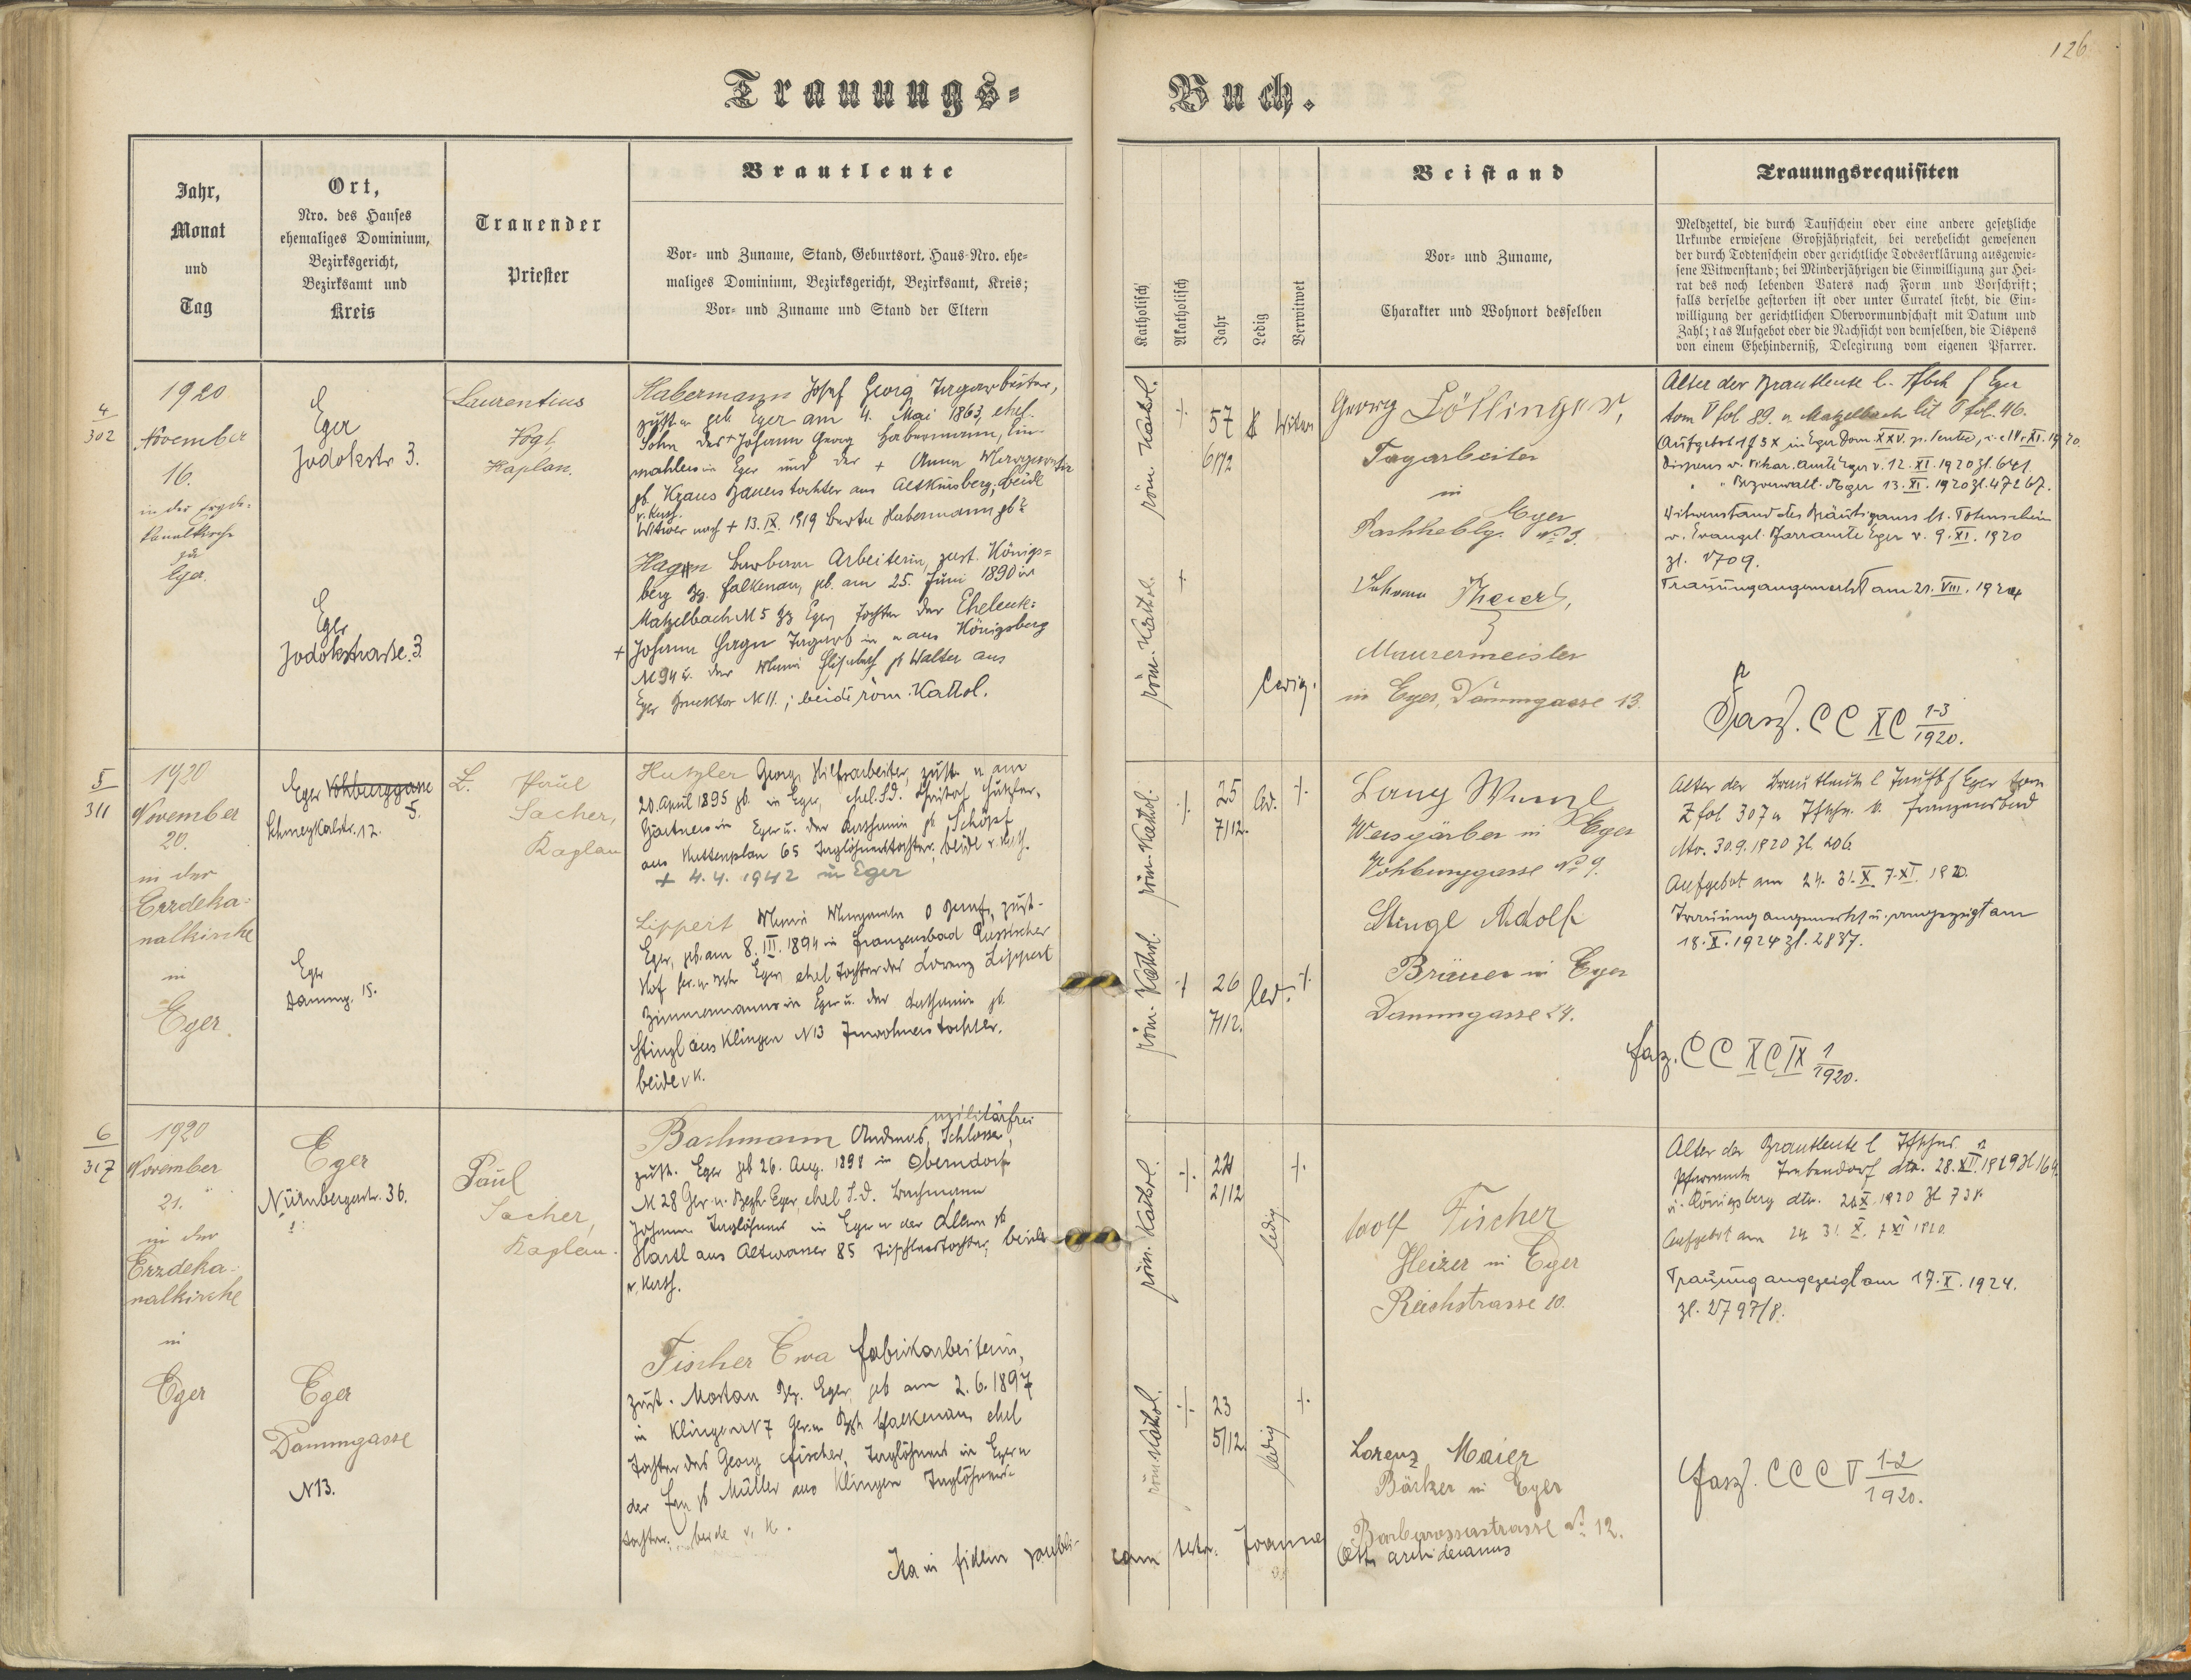 126
Trauungs-
Buch.
Jahr,
Monat
und
Tag
Ort,
Nro. des Hauses
ehemaliges Dominium,
Bezirksgericht,
Bezirksamt und
Kreis
Trauender
Priester
Brautleute
Vor- und Zuname, Stand, Geburtsort, Haus-Nro. ehe-
maliges Dominium, Bezirksgericht, Bezirksamt, Kreis;
Vor- und Zuname und Stand der Eltern
Katholisch
Akatholisch
Jahr
Ledig
Verwitwet
Beistand
Vor- und Zuname,
Charakter und Wohnort desselben
Trauungsrequisiten
Meldzettel, die durch Taufschein oder eine andere gesetzliche
Urkunde erwiesene Großjährigkeit, bei verehelicht gewesenen
der durch Todtenschein oder gerichtliche Todeserklärung ausgewie-
sene Witwenstand; bei Minderjährigen die Einwilligung zur Hei-
rat des noch lebenden Vaters nach Form und Vorschrift;
falls derselbe gestorben ist oder unter Curatel steht, die Ein-
willigung der gerichtlichen Obervormundschaft mit Datum und
Zahl; das Aufgebot oder die Nachsicht von demselben, die Dispens
von einem Ehehinderniß, Delegirung vom eigenen Pfarrer.
4
302
1920
November
16.
in der Erzde-
kanalkirche
zu
Eger.
Eger
Jodokstr 3.
Eger
Jodokstrasse 3.
Laurentius
Vogl,
Kaplan.
Habermann Josef Georg Tagarbeiter,
zust. geb. Eger am 4. Mai 1863, ehel.
Sohn des + Johann Georg Habermann,
in Eger und der + Anna Margareta
gb. Kraus Bauerstochter aus Altkinsberg; beide
r. kath.
Witwer nach + 13. IX. 1919 Berta Habermann gb.
Hagn Barbara Arbeiterin, zust. Königs-
berg Bz. Falkenau, gb. am 25. Juni 1890 in
Matzelbach N 5 Bz Eger, Tochter der Eheleute:
+ Johann Hagn Tagarb in aus Königsberg
N 94 u. der Maria Elisabeth gb Walter aus
Eger N 11.; beide röm. Kathol.
röm. Kathol.
57
6/12
Witwer
röm. Kathol.
ledig.
Georg Löllinger,
Tagarbeiter
in
Eger
No 3.
Johann Theierl,
Maurermeister
in Eger, Dammgasse 13.
Alter der Brautleute l. Tfbch Eger
tom V fol 89. u Matzelbach lit fol. 46.
Dispens v. Vikar. Amt Eger v. 12. XI. 1920 Zl. 641.
" " Bezverwalt. Eger 13. XI. 1920 Zl. 47267.
Witwenstand des Bräutigams lt. Totenschein
v. Evangel. Pfarramte Eger v. 9. XI. 1920
Zl. 1709.
Trauung angemerkt am 21. VIII. 1924
Fasz. CC XC 1-3
1920.
5
311
1920
November
20.
in der
Erzdeka-
nalkirche
in
Eger.
Eger Vohburggasse
5.
Schmeykalstr. 12.
Eger
Dammg. 15.
Paul
Sacher,
Kaplan
Hutzler Georg, Hilfsarbeiter, zust. u am
20. April 1895 gb. in Eger, ehel. S. d. Christof Hutzler,
Gärtners in Eger u. der Katharina gb Schöpf
aus Kuttenplan 65 Taglöhnerstochter; beide r. kath.
+ 4. 4. 1942 in Eger
Lippert Maria Margareta o Beruf, zust.
Eger, gb. am 8. III. 1894 in Franzensbad Russischer
Hof Ger. u. Bzh Eger, ehel. Tochter des Lorenz Lippert
Zimmermanns in Eger u. der Katharina gb.
Stingl aus Klingen N 13 Inwohnerstochter.
beide r k.
röm. Kathol.
25
7/12.
led.
röm. Kathol.
26
7/12.
led.
Wunzl
Weisgärber in Eger
Vohburggasse No 9.
Stingl Adolf
Bräuer in Eger
Dammgasse 24.
Alter der Brautleute l Taufb f Eger tom
Z fol 307 u Tfschn. v. Franzensbad
dto. 30.9.1920 Zl. 206.
Aufgebot am 24. 31. X. 7. XI. 1920.
Trauung angemerkt u. angezeigt am
18. X. 1924 Zl. 2837.
Fasz. CC XC IX 1
1920.
6
317
1920
November
21.
in der
Erzdeka-
nalkirche
in
Eger
Eger
Nürnbergerstr. 36.
Eger
Dammgasse
N13.
Paul
Sacher,
Kaplan.
militärfrei
Bachmann Andreas, Schlosser,
zust. Eger geb 26. Aug. 1898 in Oberndorf
N 28 Ger. u. Bezh. Eger, ehel S. d. Bachmann
Johann Taglöhners in Eger u der gb
Hartl aus Altwasser 85 Tischlerstochter; beide
r. kath.
Fischer Eva Fabrikarbeiterin,
zust. Bez. Eger, geb am 2.6.1897
in Klingen N 7 Ger. u Bzh Falkenau, ehel
Tochter des Georg Fischer, Taglöhners in Eger u
der Eva gb Müller aus Klingen Taglöhners-
tochter. beide r. k.
röm. Kathol.
2/12
ledig
röm Kathol.
23
5/12.
ledig
Adolf Fischer
Heizer in Eger
Reichstrasse 20.
Lorenz Maier
Bäcker in Eger
Barbarossastrasse No 12.
Alter der Brautleute l Tfschns
Pfarramte Trebendorf
u. Königsberg
Aufgebot am 24 31. X. 7 XI 1920.
Trauung angezeigt am 17. X. 1924.
Zl. 2797/8.
Fasz. CCC V 1-2
1920.
Ita in fidem
archidecanus